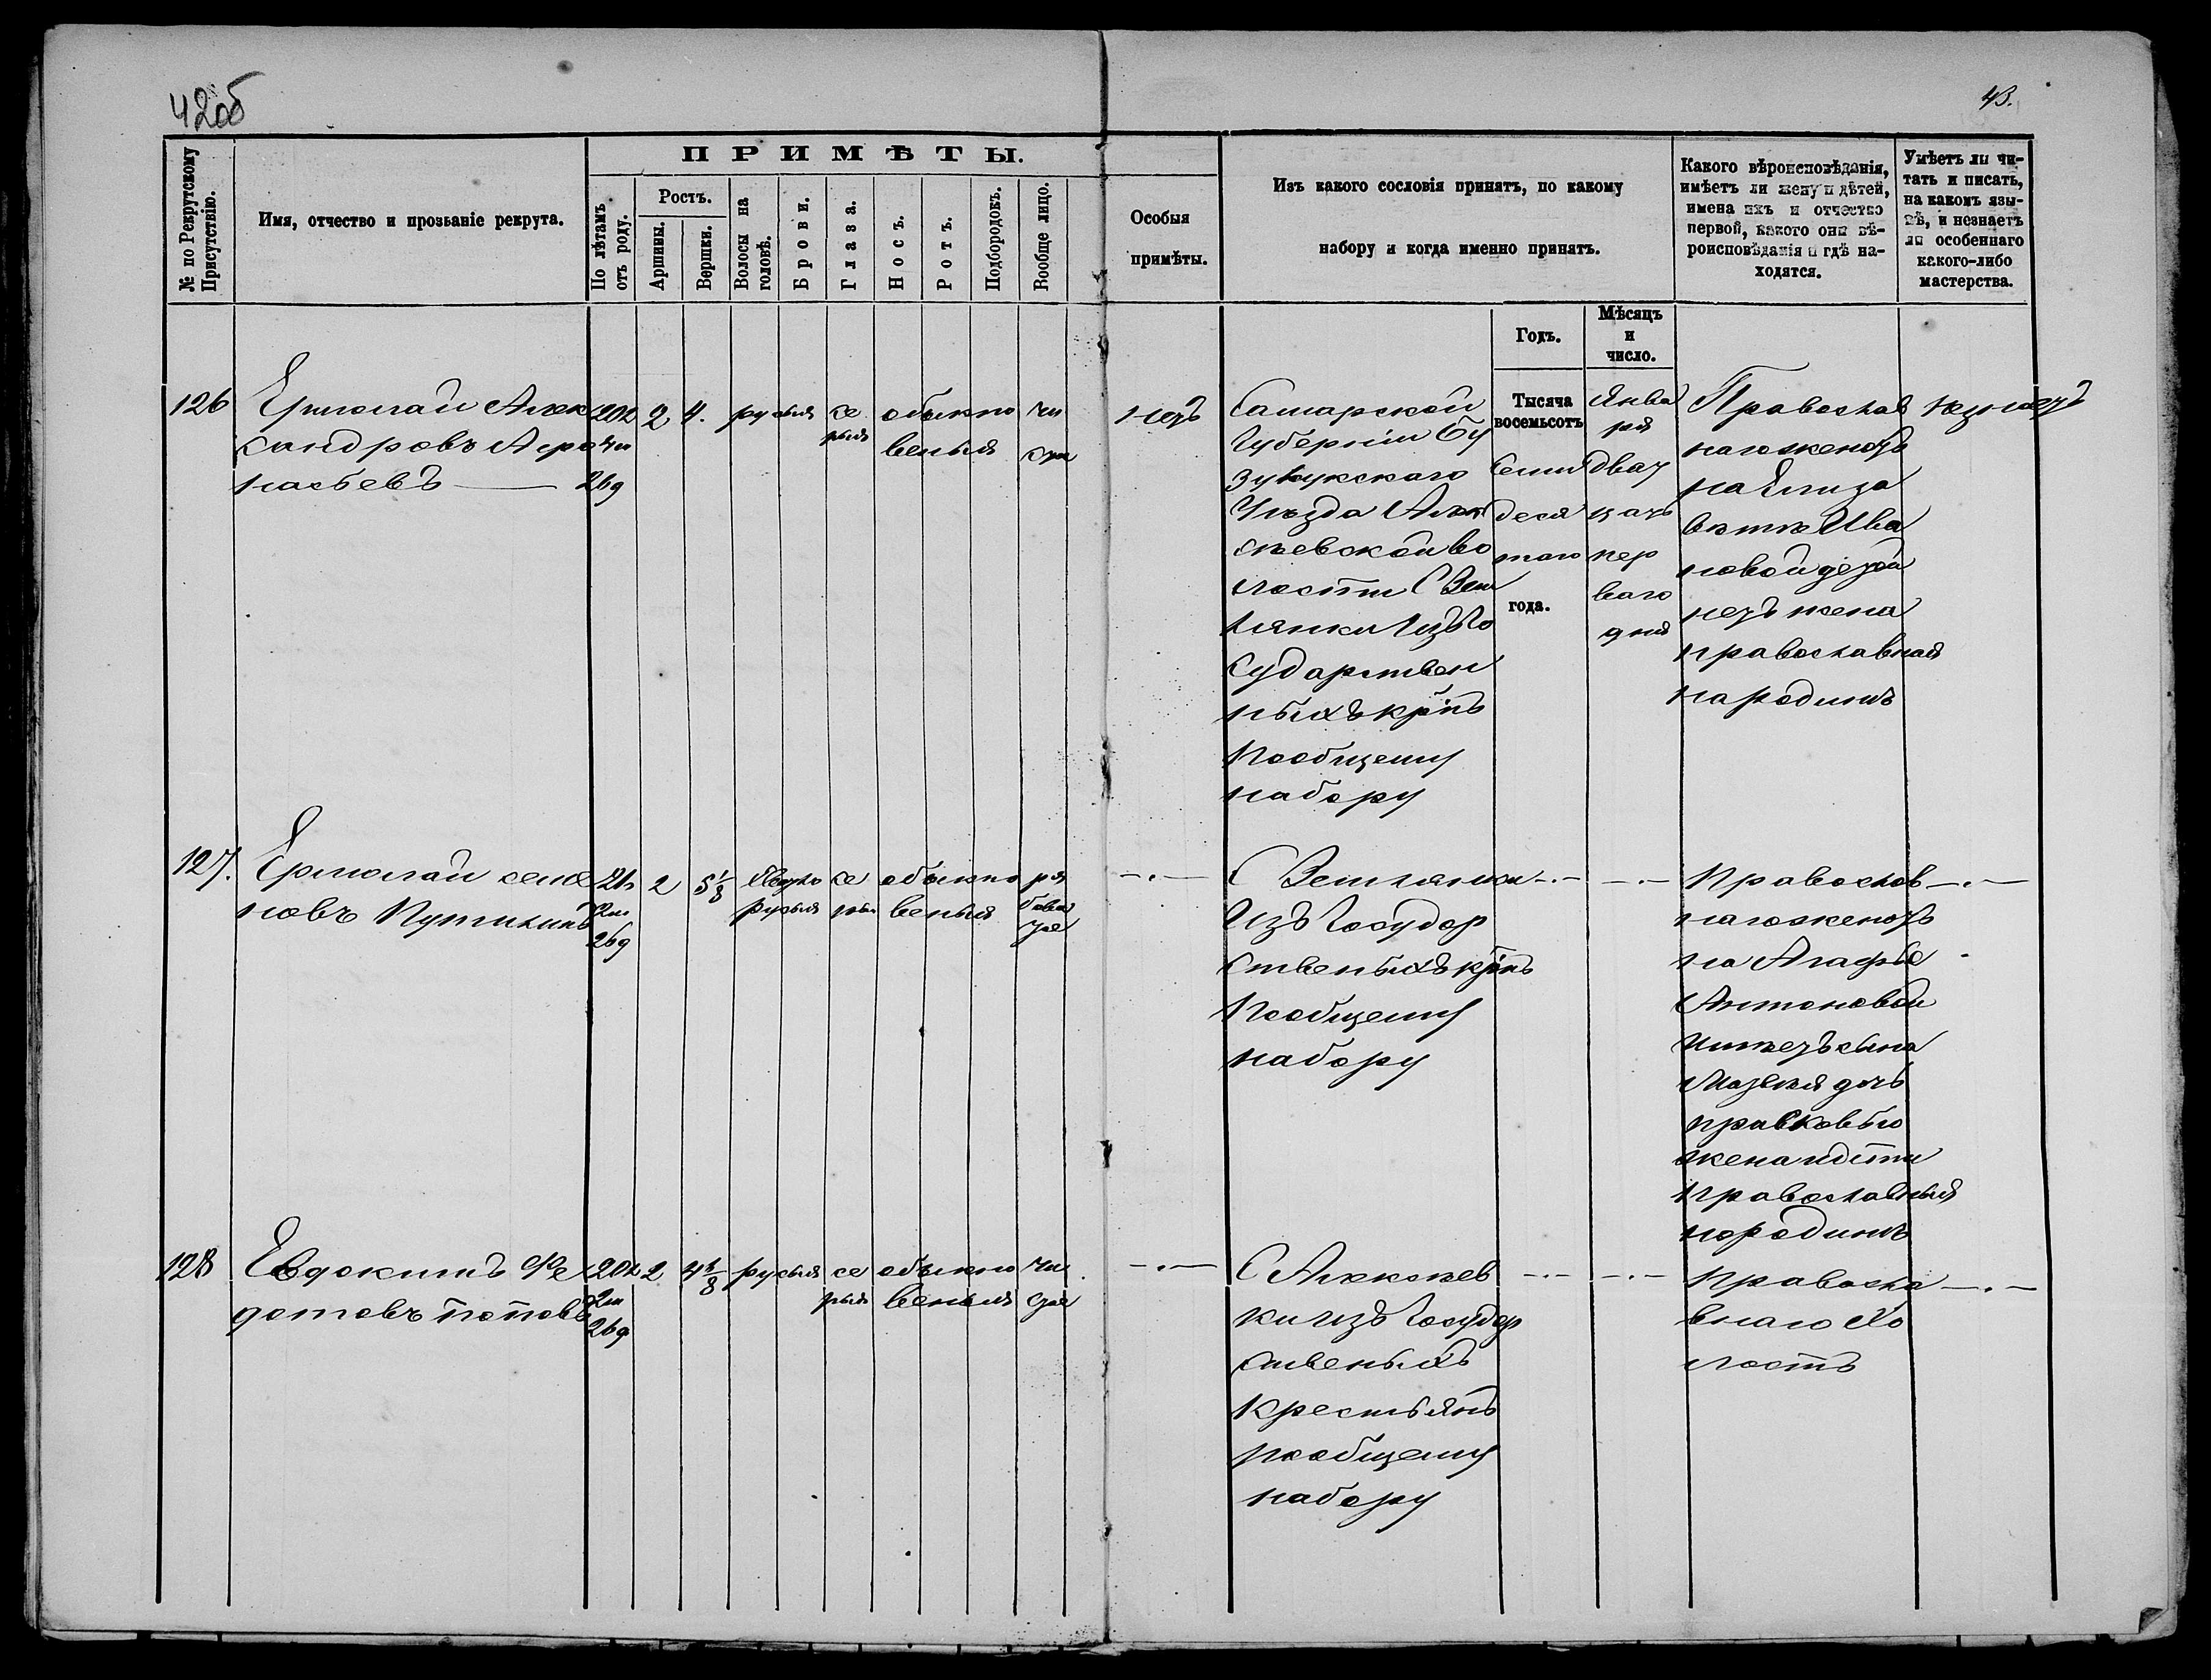 42об
43.
№ по Рекрутскому Присутствію.
Имя, отчество и прозваніе рекрута.
ПРИМѢТЫ.
По лѣтамъ отъ роду.
Ростъ.
Аршины.
Вершки.
Волосы на головѣ.
Брови.
Глаза.
Носъ.
Ротъ.
Подбородокъ.
Вообще лицо.
Особыя
примѣты.
Изъ какого сословія принятъ, по какому
набору и когда именно принятъ.
Какого вѣроисповѣданія,
имѣетъ ли жену и дѣтей,
имена ихъ и отчество
первой, какого они вѣ-
роисповѣданія и гдѣ на-
ходятся.
Умѣетъ ли чи-
тать и писать,
на какомъ язы-
кѣ, и незнаетъ
ли особеннаго
какого-либо
мастерства.
Годъ.
Мѣсяцъ
и
число.
126
Ермолай Алек
сандровъ Афо
насьевъ
20л
4м
26д
2
4.
русыя
се
рыя
обыкно
веныя
чи
стое
нетъ
Самарской
Губерніи Бу
зулукскаго
Уѣзда Алек
сѣевской во
лости С Зем
лянки Изъ Го
сударствен
ныхъ крнъ
Пообщему
набору
Тысяча
восемьсотъ
Семи
деся
таго
года.
Янва
ря
двад
цать
пер
ваго
дня
Православ
наго женатъ
на Елиза
ветѣ Ива
новой детей
нетъ жена
православная
народинѣ
неумеетъ
127.
Ермолай семе
новъ Путилинъ
21г
2м
26д
2
5 1/8
Светло
русыя
се
рыя
обыкно
веныя
ря
бова
тое
-.-
С Землянки -.- -.-
Изъ Государ
ственыхъ крнъ
Пообщему
набору
Православ -.-
наго женатъ
на Агафье
Антоновой
имеетъ сына
дочь
жена идети
православныя
народинѣ
128
Евдокимъ Фе
дотовъ Поповъ
20л
2м
26д
2
русыя
се
рыя
обыкно
веныя
чи
стое
-.-
С Алексеев -.- -.-
ки изъ Государ
ственыхъ
крестьянъ
пообщему
набору
Правосла -.-
внаго Хо
лостъ